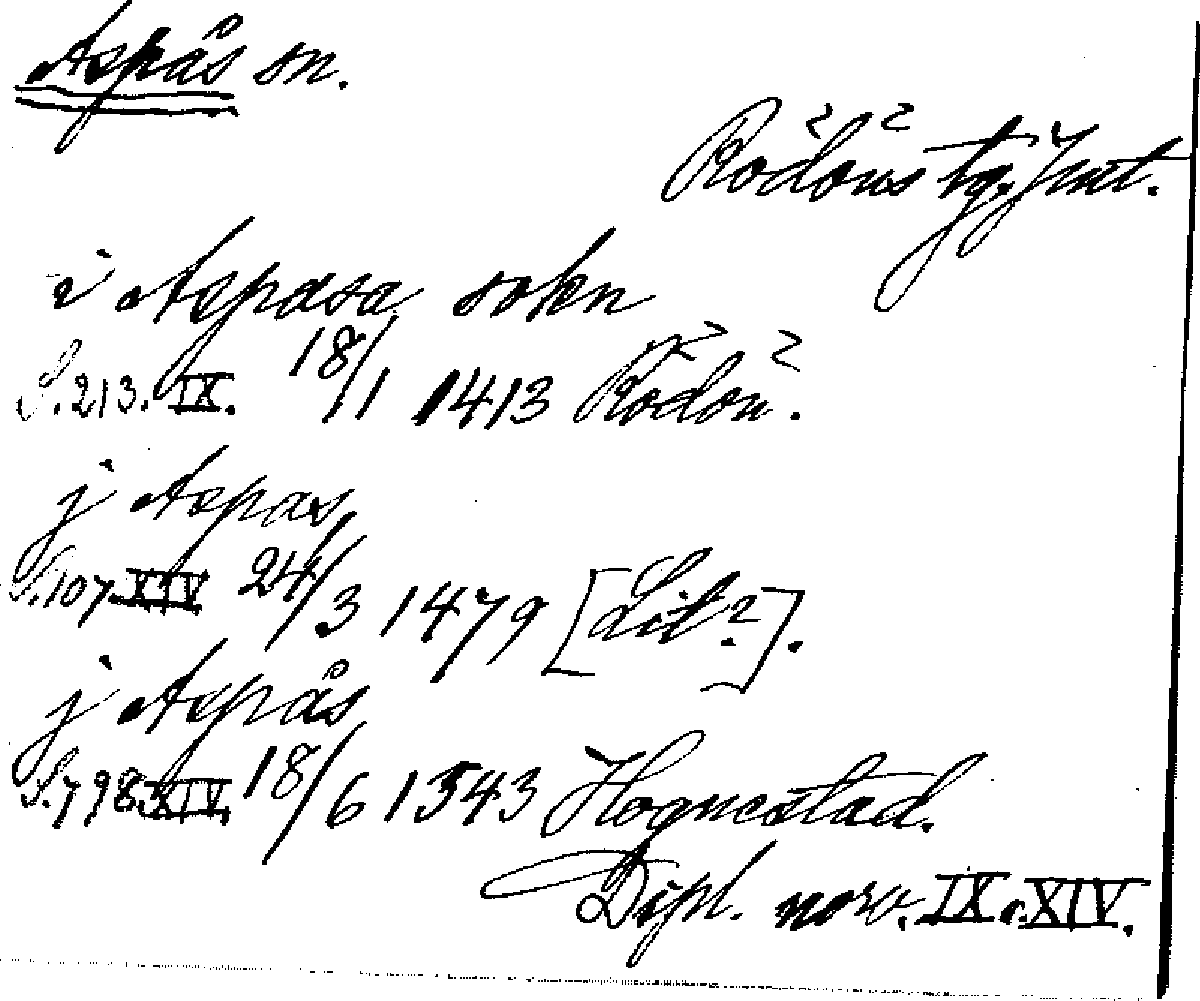 Aspås sn.
Rödöns tg. Jmt.
i Aspasa sokn
S. 213. IX. 18/1 1413 Rödön.
j Aspas
S. 107. XIV 24/3 1479 [Lit?].
j Aspås
S. 798. XIV. 18/6 1543 Hognestad.
Dipl. norv. IX o. XIV.